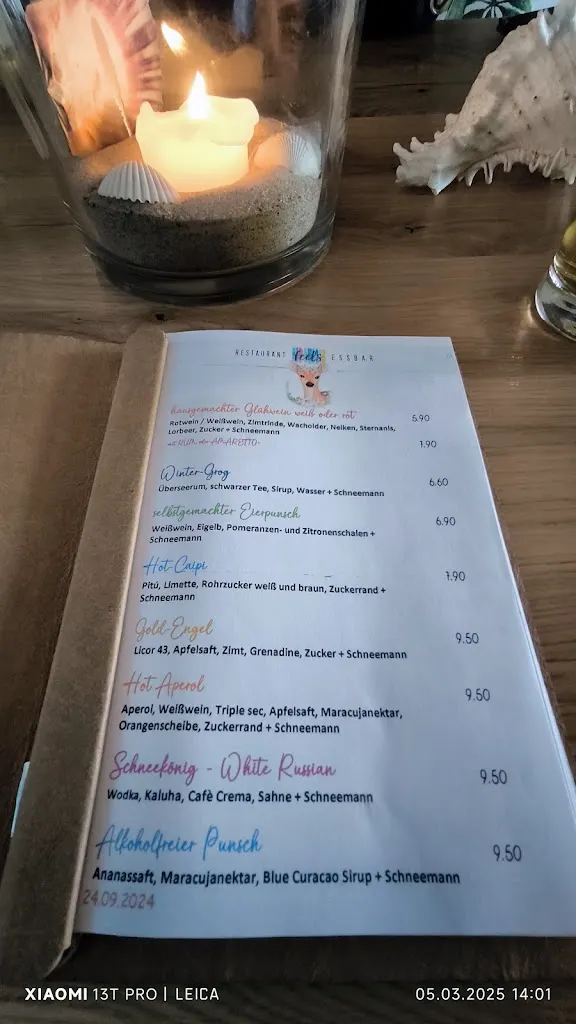 RESTAURANT feel's ESSBAR
hausgemachter Glühwein weiß oder rot 5.90
Rotwein / Weißwein, Zimtrinde, Wacholder, Nelken, Sternanis,
Lorbeer, Zucker + Schneemann
mit RUM oder AMARETTO 1.90
Winter-Grog 6.60
Überseerum, schwarzer Tee, Sirup, Wasser + Schneemann
selbstgemachter Eierpunsch 6.90
Weißwein, Eigelb, Pomeranzen- und Zitronenschalen +
Schneemann
Hot-Caipi 7.90
Pitú, Limette, Rohrzucker weiß und braun, Zuckerrand +
Schneemann
Gold-Engel 9.50
Licor 43, Apfelsaft, Zimt, Grenadine, Zucker + Schneemann
Hot Aperol 9.50
Aperol, Weißwein, Triple sec, Apfelsaft, Maracujanektar,
Orangenscheibe, Zuckerrand + Schneemann
Schneekönig - White Russian 9.50
Wodka, Kaluha, Cafè Crema, Sahne + Schneemann
Alkoholfreier Punsch 9.50
Ananassaft, Maracujanektar, Blue Curacao Sirup + Schneemann
24.09.2024
XIAOMI 13T PRO | LEICA 05.03.2025 14:01